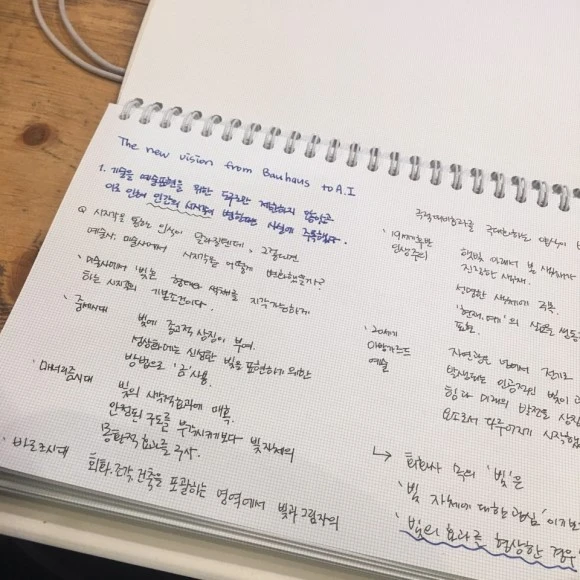 The new vision from Bauhaus to A.I
1. 기술을 예술표현을 위한 도구로만 제한하지 않았고
이로 인해 인간의 시지각이 변화했다는 사실에 주목했다.
Q 시지각을 통한 인식이 달라졌다면, 그렇다면
예술사, 미술사에서 시지각은 어떻게 변화했을까?
미술사에서 '빛'은 형태와 색채를 지각가능하게
하는 시지각의 기본조건이다.
중세시대
빛에 종교적 상징이 부여.
성상화에는 신성한 빛을 표현하기 위한
방법으로 '금' 사용.
매너리즘시대
빛의 시각적효과에 매혹.
안정된 구도를 부각시키기보다 빛 자체의
몽환적 효과를 구사.
바로크시대
회화, 조각, 건축을 포괄하는 영역에서 빛과 그림자의
극적대비효과를 극대화하는
19세기후반
인상주의
햇빛 아래서 빛
선명한 색채에 주목.
표현.
20세기
아방가르드
예술
자연광을 넘어서 전기로
발생되는 인공적인 빛이
힘과 미래의 발전을
요소로서 다루어지기 시작
↳ 회화사 속의 '빛'은
'빛 자체에 대한 관심'이기보
'빛의 효과를 형상한 경우